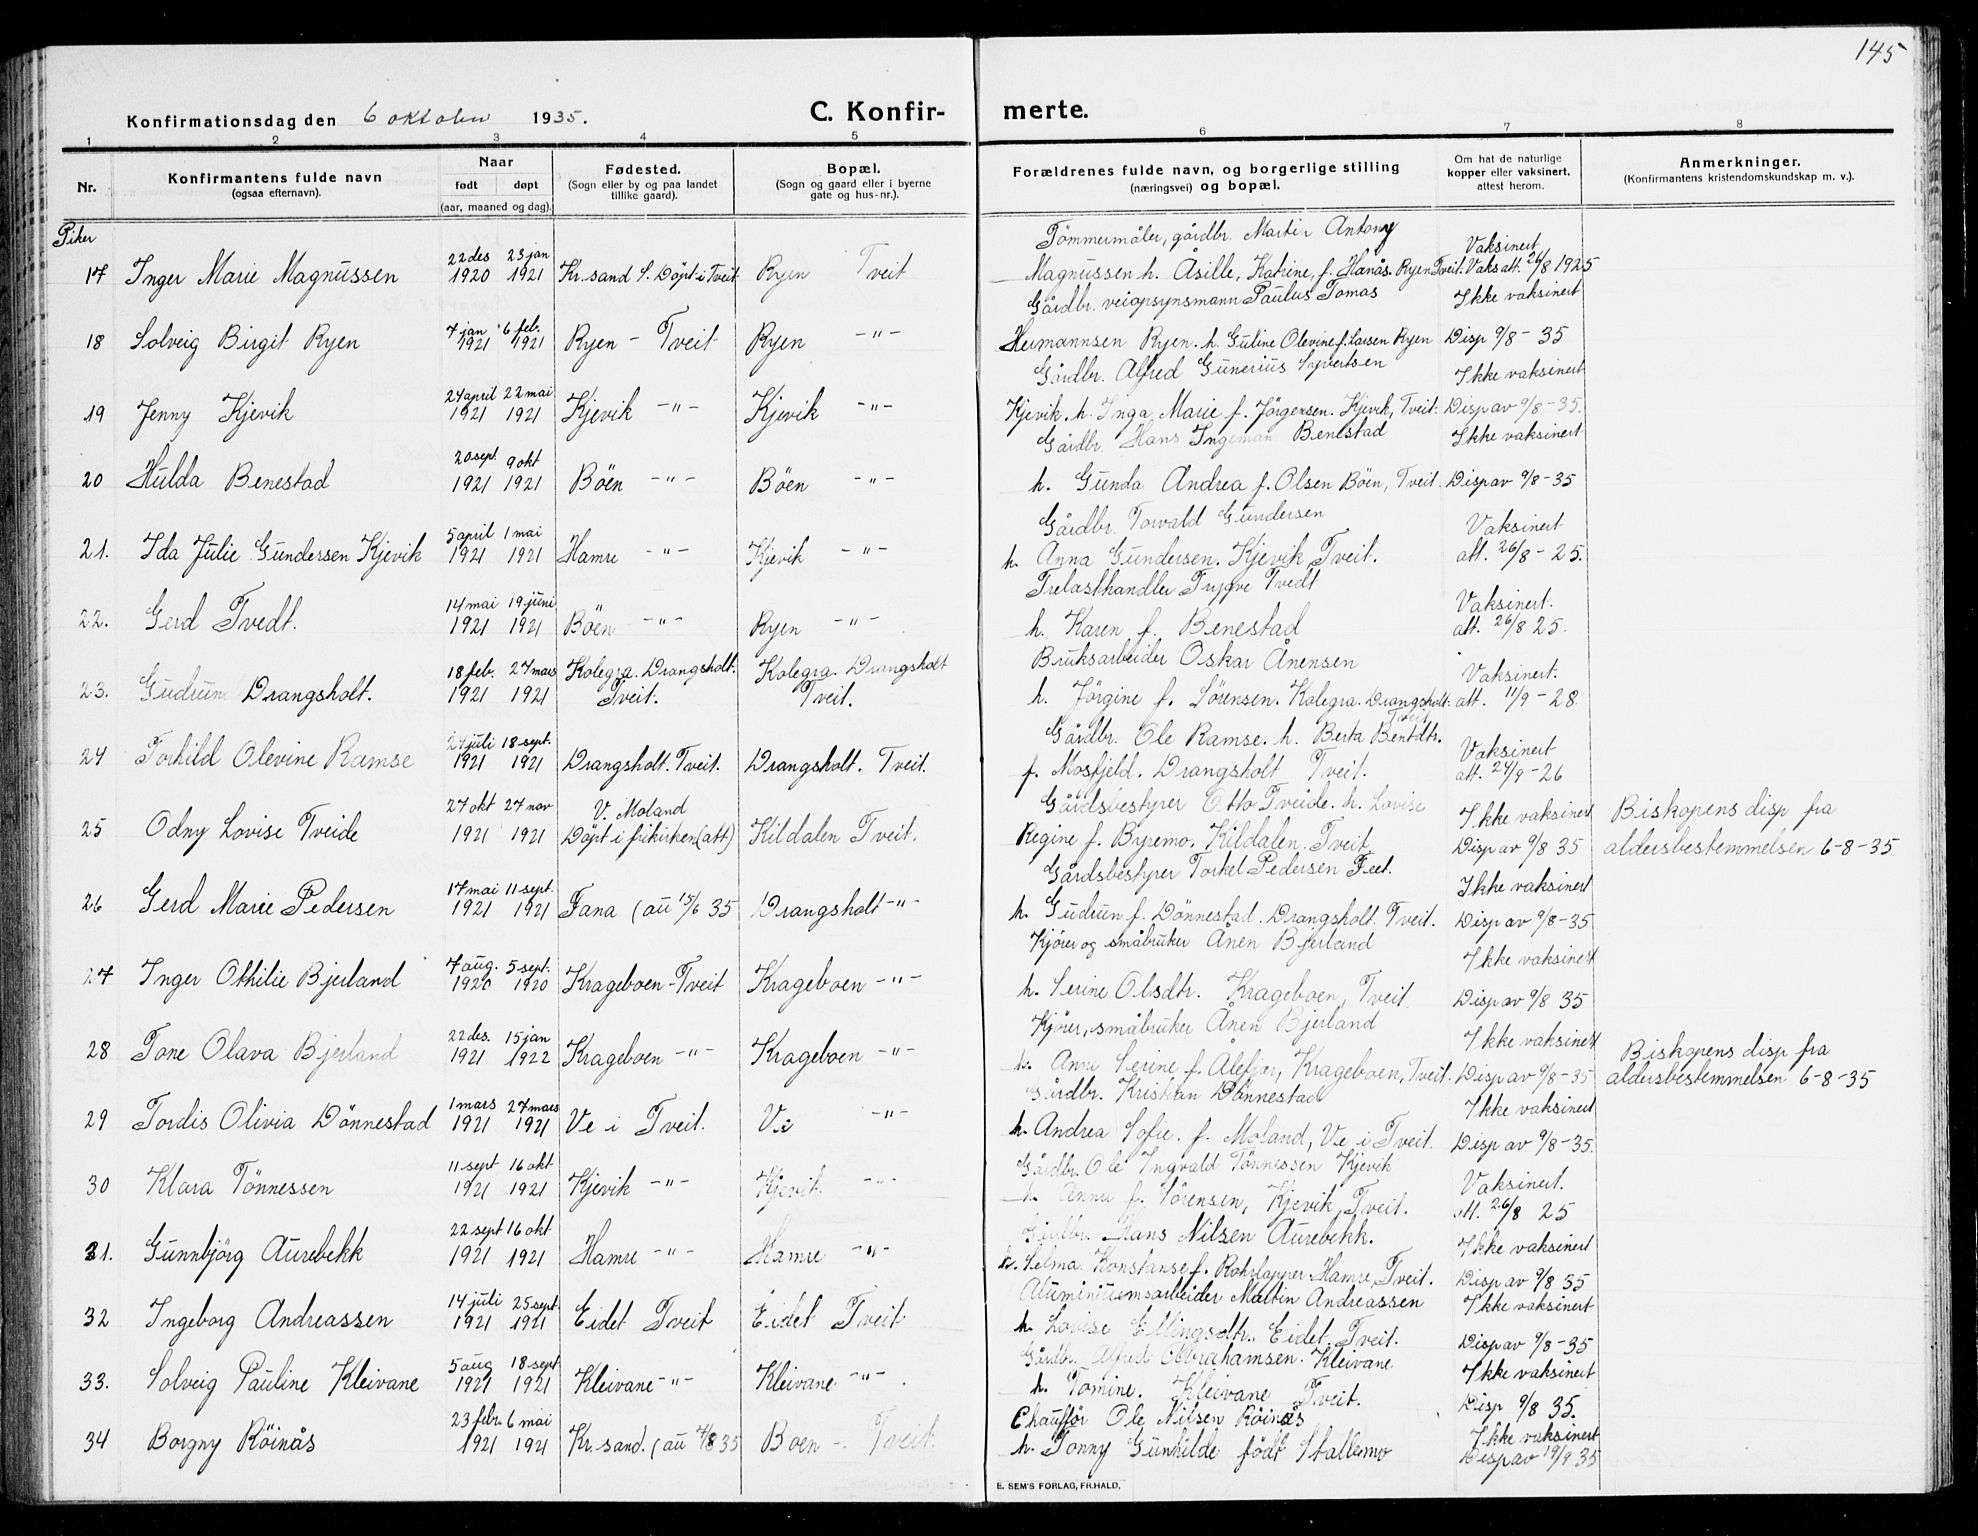 145
Konfirmationsdag den 6 oktober 1935. C. Konfir- merte.
1 2 3 4 5 6 7 8
Nr. Konfirmantens fulde navn (ogsaa efternavn). Naar født døpt (aar, maaned og dag). Fødested. (Sogn eller by og paa landet tillike gaard). Bopæl. (Sogn og gaard eller i byerne gate og hus-nr.). Forældrenes fulde navn, og borgerlige stilling (næringsvei) og bopæl. Om hat de naturlige kopper eller vaksinert, attest herom. Anmerkninger. (Konfirmantens kristendomskundskap m. v.).
Piker
Tömmermåler, gårdbr. Martin Antony Vaksinert
22 des 23 jan
17 Inger Marie Magnussen 1920 1921 Kr.sand S. Döpt i Tveit Ryen Tveit Magnussen h. Åsille, Katrine, f. Hanås. Ryen Tveit. Vaks att. 26/8 1925
Gårdbr. veiopsynsmann Paulus Tomas Ikke vaksinert
7 jan 6 feb.
18 Solveig Birgit Ryen 1921 1921 Ryen - Tveit Ryen -"- Hermannsen Ryen. h. Guline Olevine f. Larsen Ryen Disp 9/8 - 35
Gårdbr. Alfred Gunerius Syvertsen Ikke vaksinert
24 april 22 mai
19 Jenny Kjevik 1921 1921 Kjevik -"- Kjevik -"- Kjevik. h. Inga Marie f. Jörgensen. Kjevik, Tveit. Disp av 9/8 - 35.
Gårdbr. Hans Ingeman Benestad Ikke vaksinert
20 sept 9 okt
20 Hulda Benestad 1921 1921 Böen -"- Böen -"- h. Gunda Andrea f. Olsen Böen, Tveit. Disp av 9/8 - 35
Gårdbr. Torvald Gundersen Vaksinert
5 april 1 mai
21. Ida Julie Gundersen Kjevik 1921 1921 Hamre -"- Kjevik -"- h. Anna Gundersen. Kjevik Tveit. att. 26/8 - 25.
Trelasthandler Trygve Tvedt Vaksinert.
14 mai 19 juni
22. Gerd Tvedt. 1921 1921 Böen -"- Ryen -"- h. Karen f. Benestad att. 26/8 25.
Bruksarbeider Oskar Ånensen Vaksinert.
18 feb. 27 mars Kolegra. Drangsholt. Kolegra. Drangsholt
23. Gudrun Drangsholt. 1921 1921 Tveit. Tveit. h. Jörgine f. Sörensen. Kolegra. Drangsholt. Tveit att. 11/9 - 28
Gårdbr. Ole Ramse. h. Berta Bentdtr. Vaksinert
24 juli 18 sept.
24 Torhild Olevine Ramse 1921 1921 Drangsholt. Tveit. Drangsholt. Tveit. f. Mosfjeld. Drangsholt Tveit. att. 24/9 - 26
Gårdsbestyrer Otto Tveide. h. Lovise Ikke vaksinert Biskopens disp fra
27 okt 27 nov V. Moland
25 Odny Lovise Tveide 1921 1921 Döpt i frikirken (att) Kildalen Tveit. Regine f. Byremo. Kildalen. Tveit Disp av 9/8 35 aldersbestemmelsen 6-8-35
Gårdsbestyrer Torkel Pedersen Feet. Ikke vaksinert
17 mai 11 sept.
26 Gerd Marie Pedersen 1921 1921 Fana (au 15/6 35 Drangsholt -"- h. Gudrun f. Dönnestad. Drangsholt. Tveit. Disp av 9/8 - 35
Kjörer og småbruker Ånen Bjerland Ikke vaksinert
7 aug. 5 sept.
27 Inger Othilie Bjerland 1920 1920 Krageboen - Tveit Krageboen -"- h. Serine Olsdtr. Krageboen, Tveit. Disp av 9/8 35
Kjörer, småbruker Ånen Bjerland Ikke vaksinert Biskopens disp fra
22 des. 15 jan
28 Tone Olava Bjerland 1921 1922 Krageboen -"- Krageboen -"- h. Anne Serine f. Ålefjær, Krageboen, Tveit. Disp av 9/8 - 35 aldersbestemmelsen 6-8-35
Gårdbr. Kristian Dönnestad Ikke vaksinert
1 mars 27 mars
29 Tordis Olivia Dönnestad 1921 1921 Ve i Tveit. Ve -"- h. Andrea Sofie. f. Moland, Ve i Tveit. Disp av 9/8 - 35.
Gårdbr. Ole Ingvald Tönnessen Kjevik Vaksinert.
11 sept 16 okt
30 Klara Tönnessen 1921 1921 Kjevik -"- Kjevik -"- h. Anna f. Sörensen, Kjevik, Tveit. att. 26/8 25
Gårdbr. Hans Nilsen Aurebekk. Ikke vaksinert
22 sept 16 okt
31. Gunnbjörg Aurebekk 1921 1921 Hamre -"- Hamre -"- h. Selma Konstanse f. Hamre, Tveit. Disp av 9/8 35
Aluminiumsarbeider Martin Andreassen Ikke vaksinert
14 juli 25 sept.
32 Ingeborg Andreassen 1921 1921 Eidet Tveit Eidet Tveit h. Lovise Ellingsdtr. Eidet, Tveit. Disp av 9/8 - 35
Gårdbr. Alfred Abrahamsen. Kleivane Ikke vaksinert
5 aug 18 sept
33. Solveig Pauline Kleivane 1921 1921 Kleivane -"- Kleivane -"- h. Tomine. Kleivane Tveit. Disp 9/8 35.
Chauffør Ole Nilsen Röinås Ikke vaksinert
23 febr. 6 mai
34 Borgny Röinås 1921 1921 Kr.sand. (au 4/8 35 Boen - Tveit. h. Tonny Gunhilde født Stallemo Disp av 19/9 35
E. SEM'S FORLAG, FR.HALD.